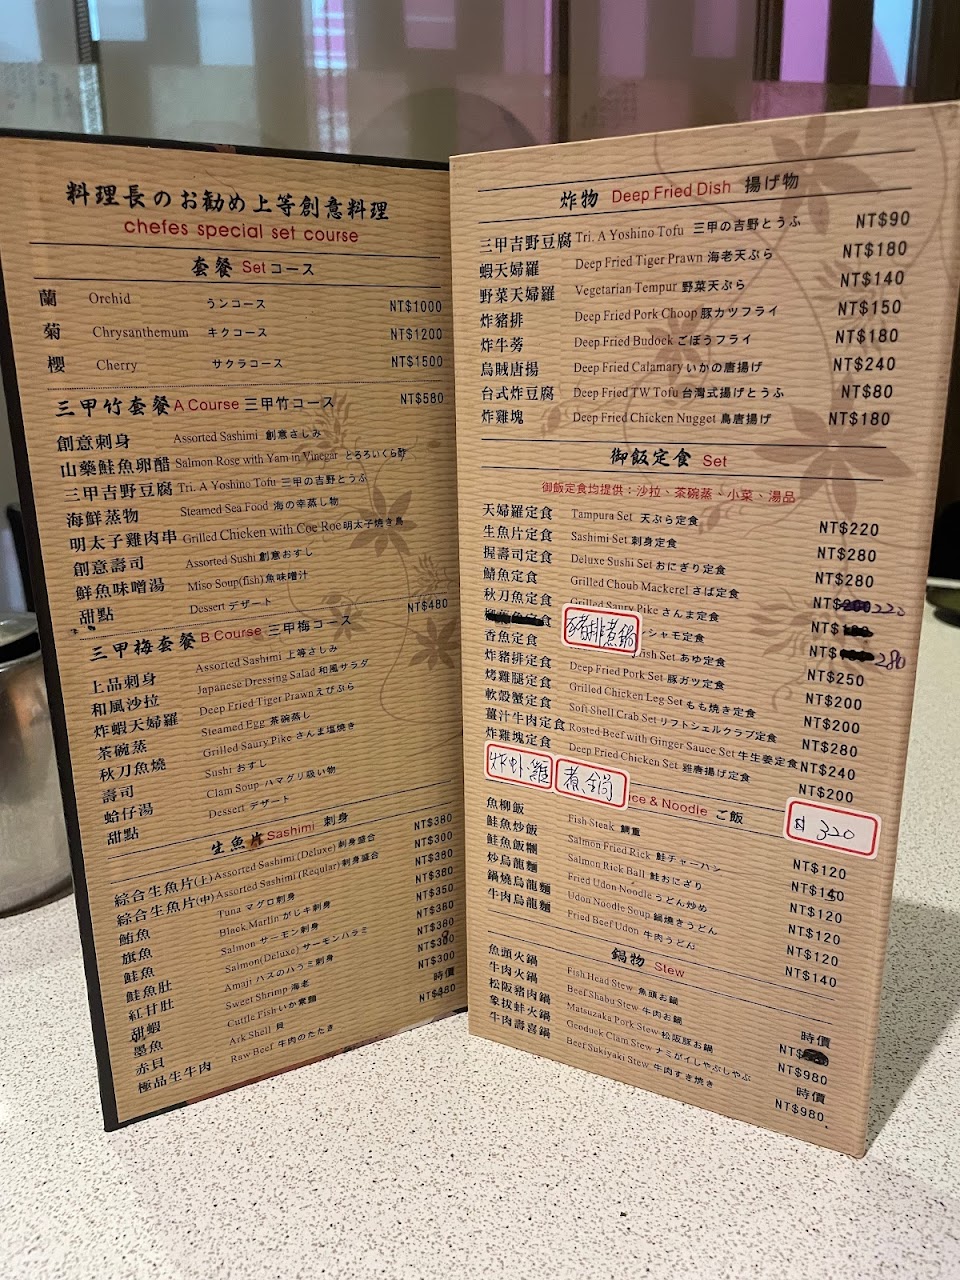 料理長のお勧め上等創意料理
chefes special set course
套餐 Set コース
蘭 Orchid うンコース NT$1000
菊 Chrysanthemum キクコース NT$1200
櫻 Cherry サクラコース NT$1500
三甲竹套餐 A Course 三甲竹コース NT$580
創意刺身 Assorted Sashimi 創意さしみ
山藥鮭魚卵醋 Salmon Rose with Yam in Vinegar とろろいくら酢
三甲吉野豆腐 Tri. A Yoshino Tofu 三甲の吉野とうふ
海鮮蒸物 Steamed Sea Food 海の幸蒸し物
明太子雞肉串 Grilled Chicken with Coe Roe 明太子焼き鳥
創意壽司 Assorted Sushi 創意おすし
鮮魚味噌湯 Miso Soup(fish) 魚味噌汁
甜點 Dessert デザート
三甲梅套餐 B Course 三甲梅コース NT$480
上品刺身 Assorted Sashimi 上等さしみ
和風沙拉 Japanese Dressing Salad 和風サラダ
炸蝦天婦羅 Deep Fried Tiger Prawn えびぷら
茶碗蒸 Steamed Egg 茶碗蒸し
秋刀魚燒 Grilled Saury Pike さんま塩焼き
壽司 Sushi おすし
蛤仔湯 Clam Soup ハマグリ吸い物
甜點 Dessert デザート
生魚片 Sashimi 刺身
綜合生魚片(上) Assorted Sashimi (Deluxe) 刺身盛合 NT$380
綜合生魚片(中) Assorted Sashimi (Reqular) 刺身盛合 NT$300
鮪魚 Tuna マグロ刺身 NT$380
旗魚 Black Marlin がじキ刺身 NT$350
鮭魚 Salmon サーモン刺身 NT$380
鮭魚肚 Salmon(Deluxe) サーモンハラミ NT$380
紅甘肚 Amaji ハスのハラミ刺身
甜蝦 Sweet Shrimp 海老 NT$300
墨魚 Cuttle Fish いか素麵
赤貝 Ark Shell 貝 時價
極品生牛肉 Raw Beef 牛肉のたたき
炸物 Deep Fried Dish 揚げ物
三甲吉野豆腐 Tri. A Yoshino Tofu 三甲の吉野とうふ NT$90
蝦天婦羅 Deep Fried Tiger Prawn 海老天ぷら NT$180
野菜天婦羅 Vegetarian Tempur 野菜天ぷら NT$140
炸豬排 Deep Fried Pork Choop 豚カツフライ NT$150
炸牛蒡 Deep Fried Budock ごぼうフライ NT$180
烏賊唐揚 Deep Fried Calamary いかの唐揚げ NT$240
台式炸豆腐 Deep Fried TW Tofu 台灣式揚げとうふ NT$80
炸雞塊 Deep Fried Chicken Nugget 鳥唐揚げ NT$180
御飯定食 Set
御飯定食均提供：沙拉、茶碗蒸、小菜、湯品
天婦羅定食 Tampura Set 天ぷら定食 NT$220
生魚片定食 Sashimi Set 刺身定食 NT$280
握壽司定食 Deluxe Sushi Set おにぎり定食 NT$280
鯖魚定食 Grilled Choub Mackerel さば定食 220
秋刀魚定食 Grilled Saury Pike さんま定食
豬排煮鍋 シシャモ定食 280
香魚定食 fish Set あゆ定食 NT$250
炸豬排定食 Deep Fried Pork Set 豚ガツ定食 NT$200
烤雞腿定食 Grilled Chicken Leg Set もも焼き定食 NT$200
軟殼蟹定食 Soft Shell Crab Set リフトシェルクラブ定食 NT$280
薑汁牛肉定食 Rosted Beef with Ginger Sauce Set 牛生姜定食 NT$240
炸雞塊定食 Deep Fried Chicken Set 雞唐揚げ定食 NT$200
煮鍋 $320
ice & Noodle ご飯
魚柳飯 Fish Steak 鯛重 NT$120
鮭魚炒飯 Salmon Fried Rick 鮭チャーハン
鮭魚飯糰 Salmon Rick Ball 鮭おにぎり NT$120
炒烏龍麵 Fried Udon Noodle うどん炒め NT$120
鍋燒烏龍麵 Udon Noodle Soup 鍋燒きうどん NT$120
牛肉烏龍麵 Fried Beef Udon 牛肉うどん NT$140
鍋物 Stew
魚頭火鍋 Fish Head Stew 魚頭お鍋 時價
牛肉火鍋 Beef Shabu Stew 牛肉お鍋
松阪豬肉鍋 Matsuzaka Pork Stew 松阪豚お鍋 NT$980
象拔蚌火鍋 Geoduck Clam Stew ナミがイしゃぶしゃぶ 時價
牛肉壽喜鍋 Beef Sukiyaki Stew 牛肉すき焼き NT$980